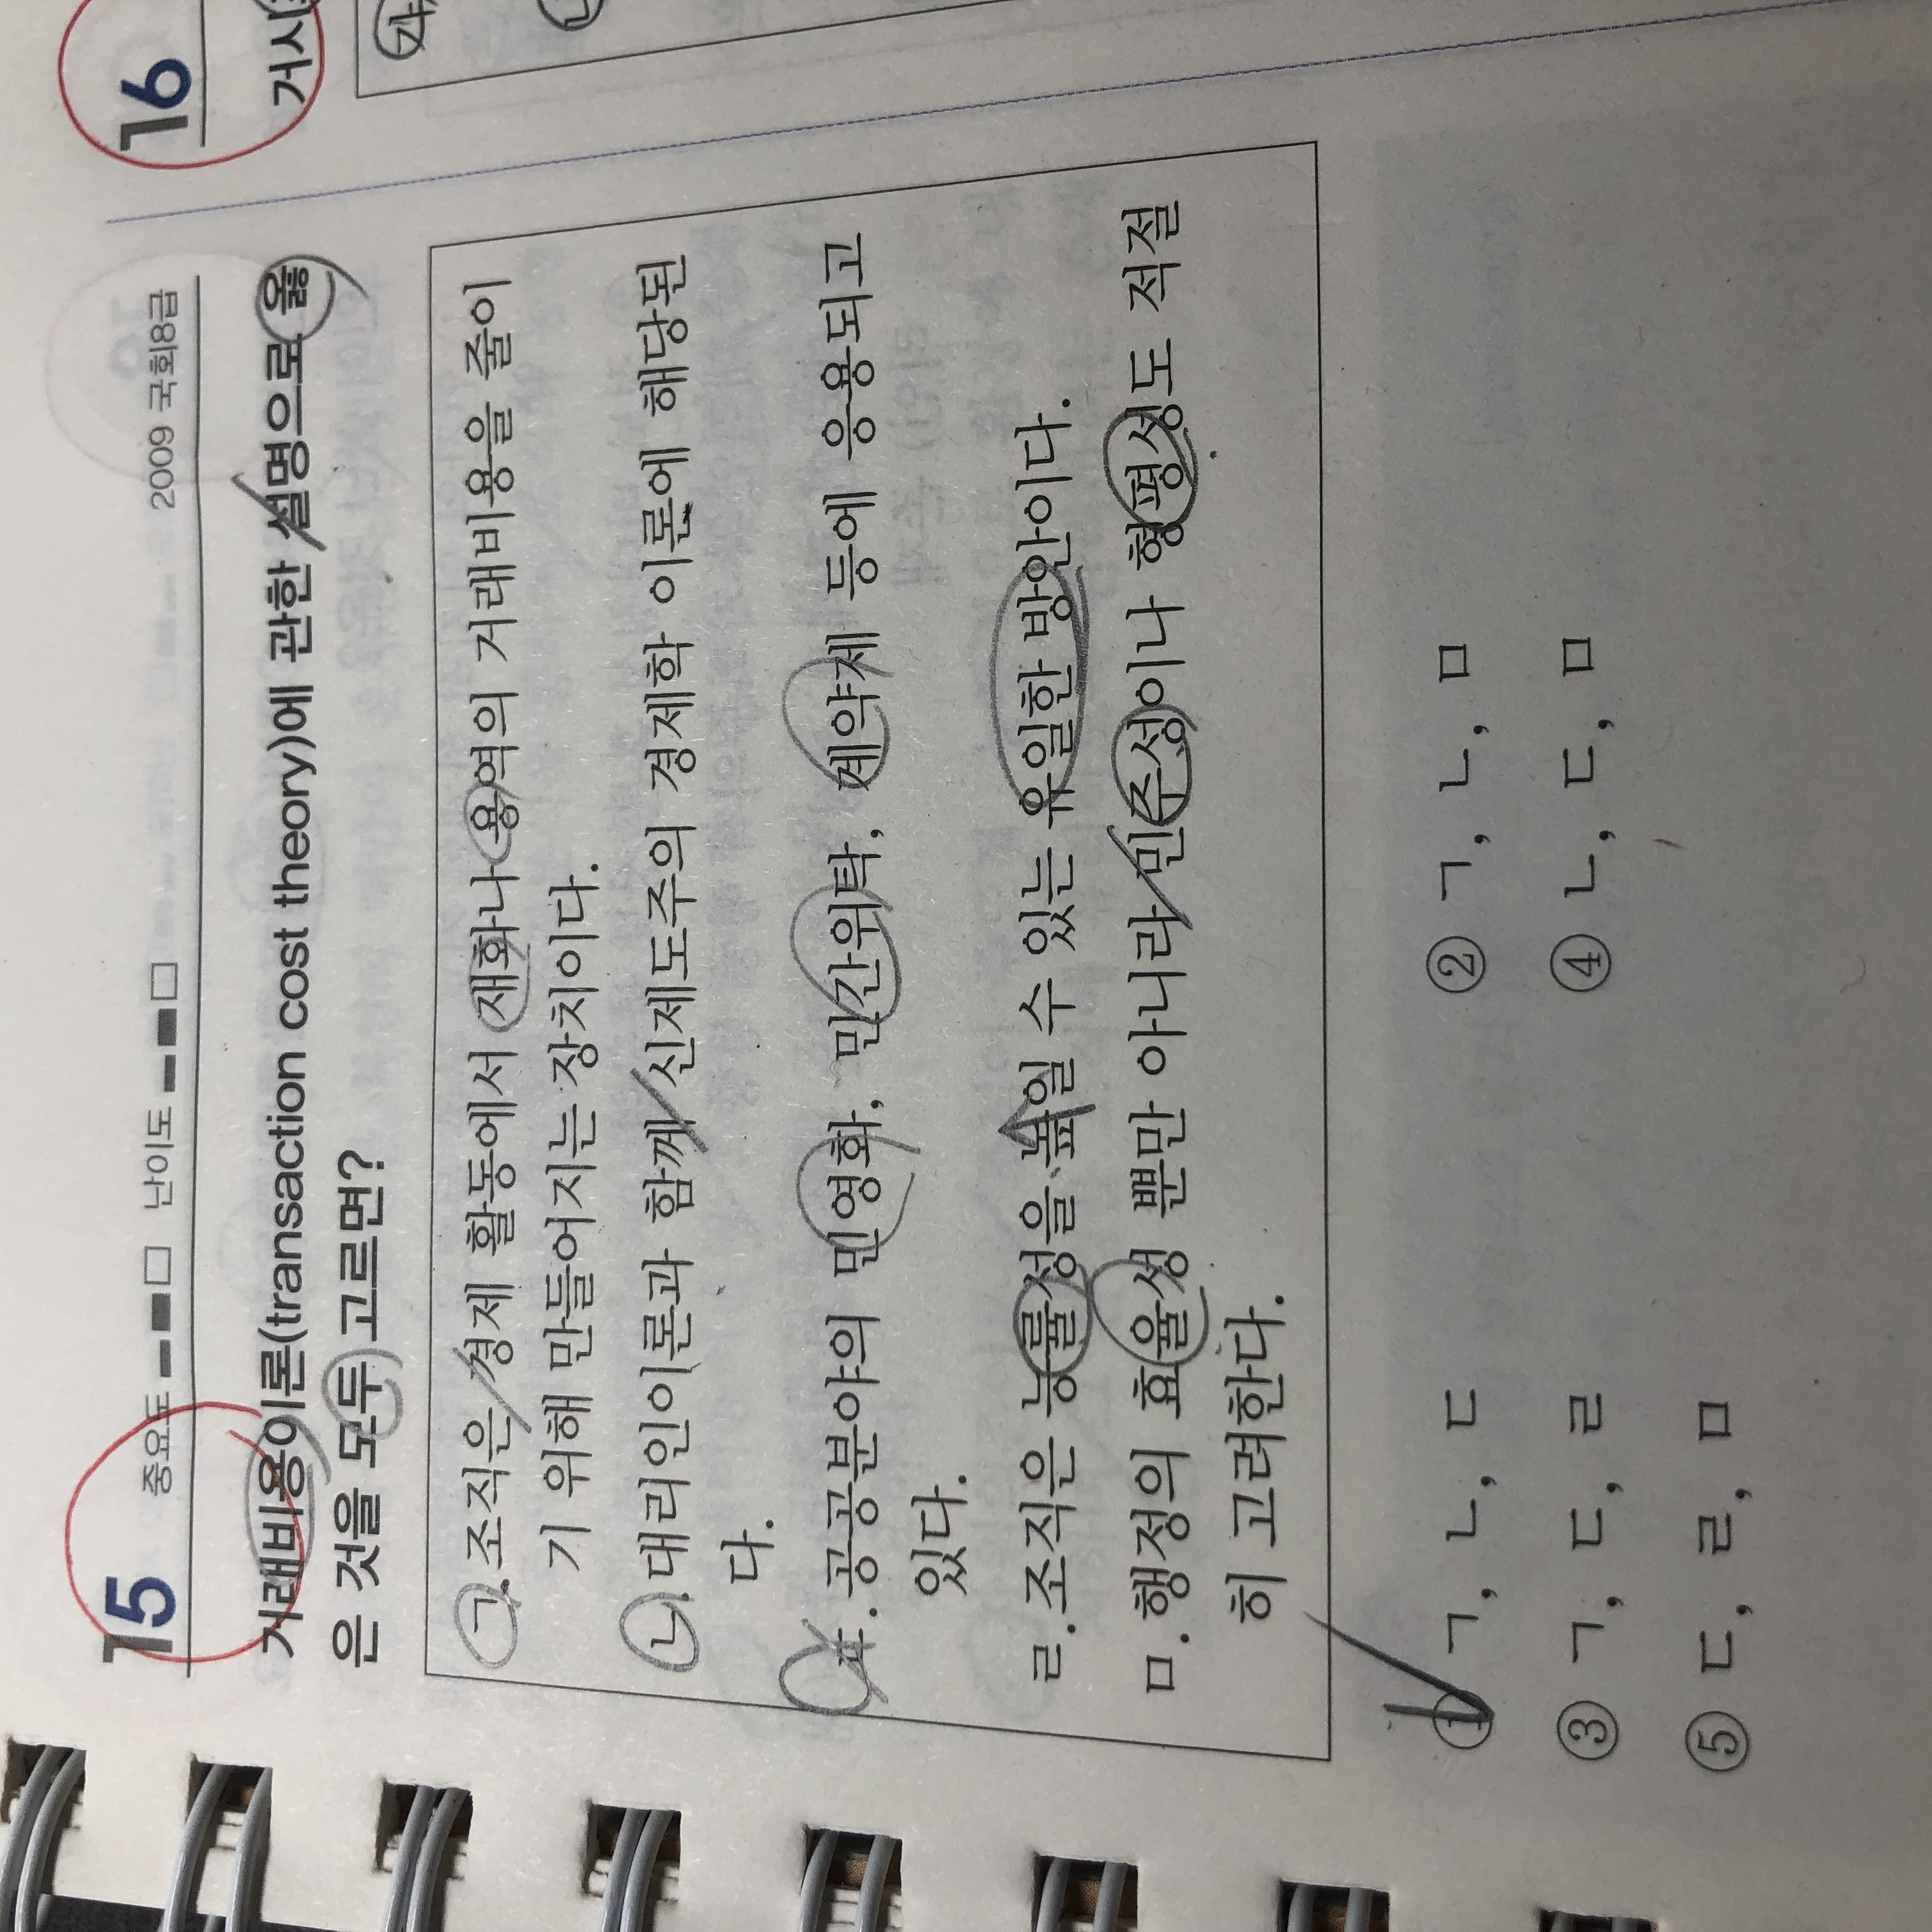 15 중요도 난이도 2009 국회8급
거래비용이론(transaction cost theory)에 관한 설명으로 옳
은 것을 모두 고르면?
ㄱ.조직은 경제 활동에서 재화나 용역의 거래비용을 줄이
기 위해 만들어지는 장치이다.
ㄴ.대리인이론과 함께 신제도주의 경제학 이론에 해당된
다.
ㄷ.공공분야의 민영화, 민간위탁, 계약제 등에 응용되고
있다.
ㄹ.조직은 능률성을 높일 수 있는 유일한 방안이다.
ㅁ.행정의 효율성 뿐만 아니라 민주성이나 형평성도 적절
히 고려한다.
① ㄱ, ㄴ, ㄷ ② ㄱ, ㄴ, ㅁ
③ ㄱ, ㄷ, ㄹ ④ ㄴ, ㄷ, ㅁ
⑤ ㄷ, ㄹ, ㅁ
16
거시